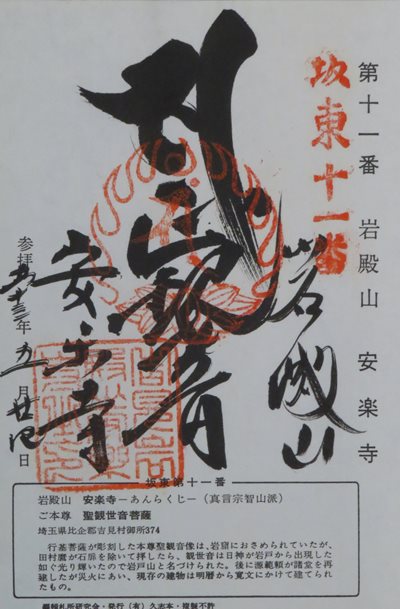 第十一番　岩殿山　安楽寺
坂東十一番
岩殿山
安楽寺
参拝五十三年五月廿四日
坂東第十一番
岩殿山　安楽寺－あんらくじ－（真言宗智山派）
ご本尊　聖観世音菩薩
埼玉県比企郡吉見村御所374
行基菩薩が彫刻した本尊聖観音像は、岩窟におさめられていたが、
田村麿が石扉を除いて拝したら、観世音は日神が岩戸から出現した
如ぐ光り輝いたので岩戸山と名づけられた。後に源範頼が諸堂を再
建したが災火にあい、現存の建物は明暦から寛文にかけて建てられ
たもの。
納経札所研究会・発行（有）久志本・複製不許